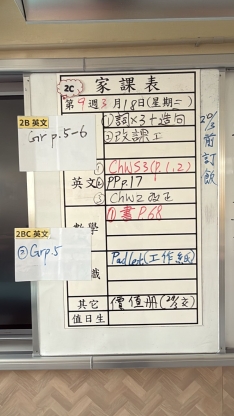 2C
家課表
第9週3月18日(星期二)
2B 英文
Gr p.5-6
①詞×3+造句
②改課工
20/3前訂飯
英文
① ChW53(p.1,2)
② PP p.17
③ ChW2改正
數學
①書P.68
2BC 英文
② Gr p.5
Padlet(工作紙)
其它
價值冊(20/3交)
值日生